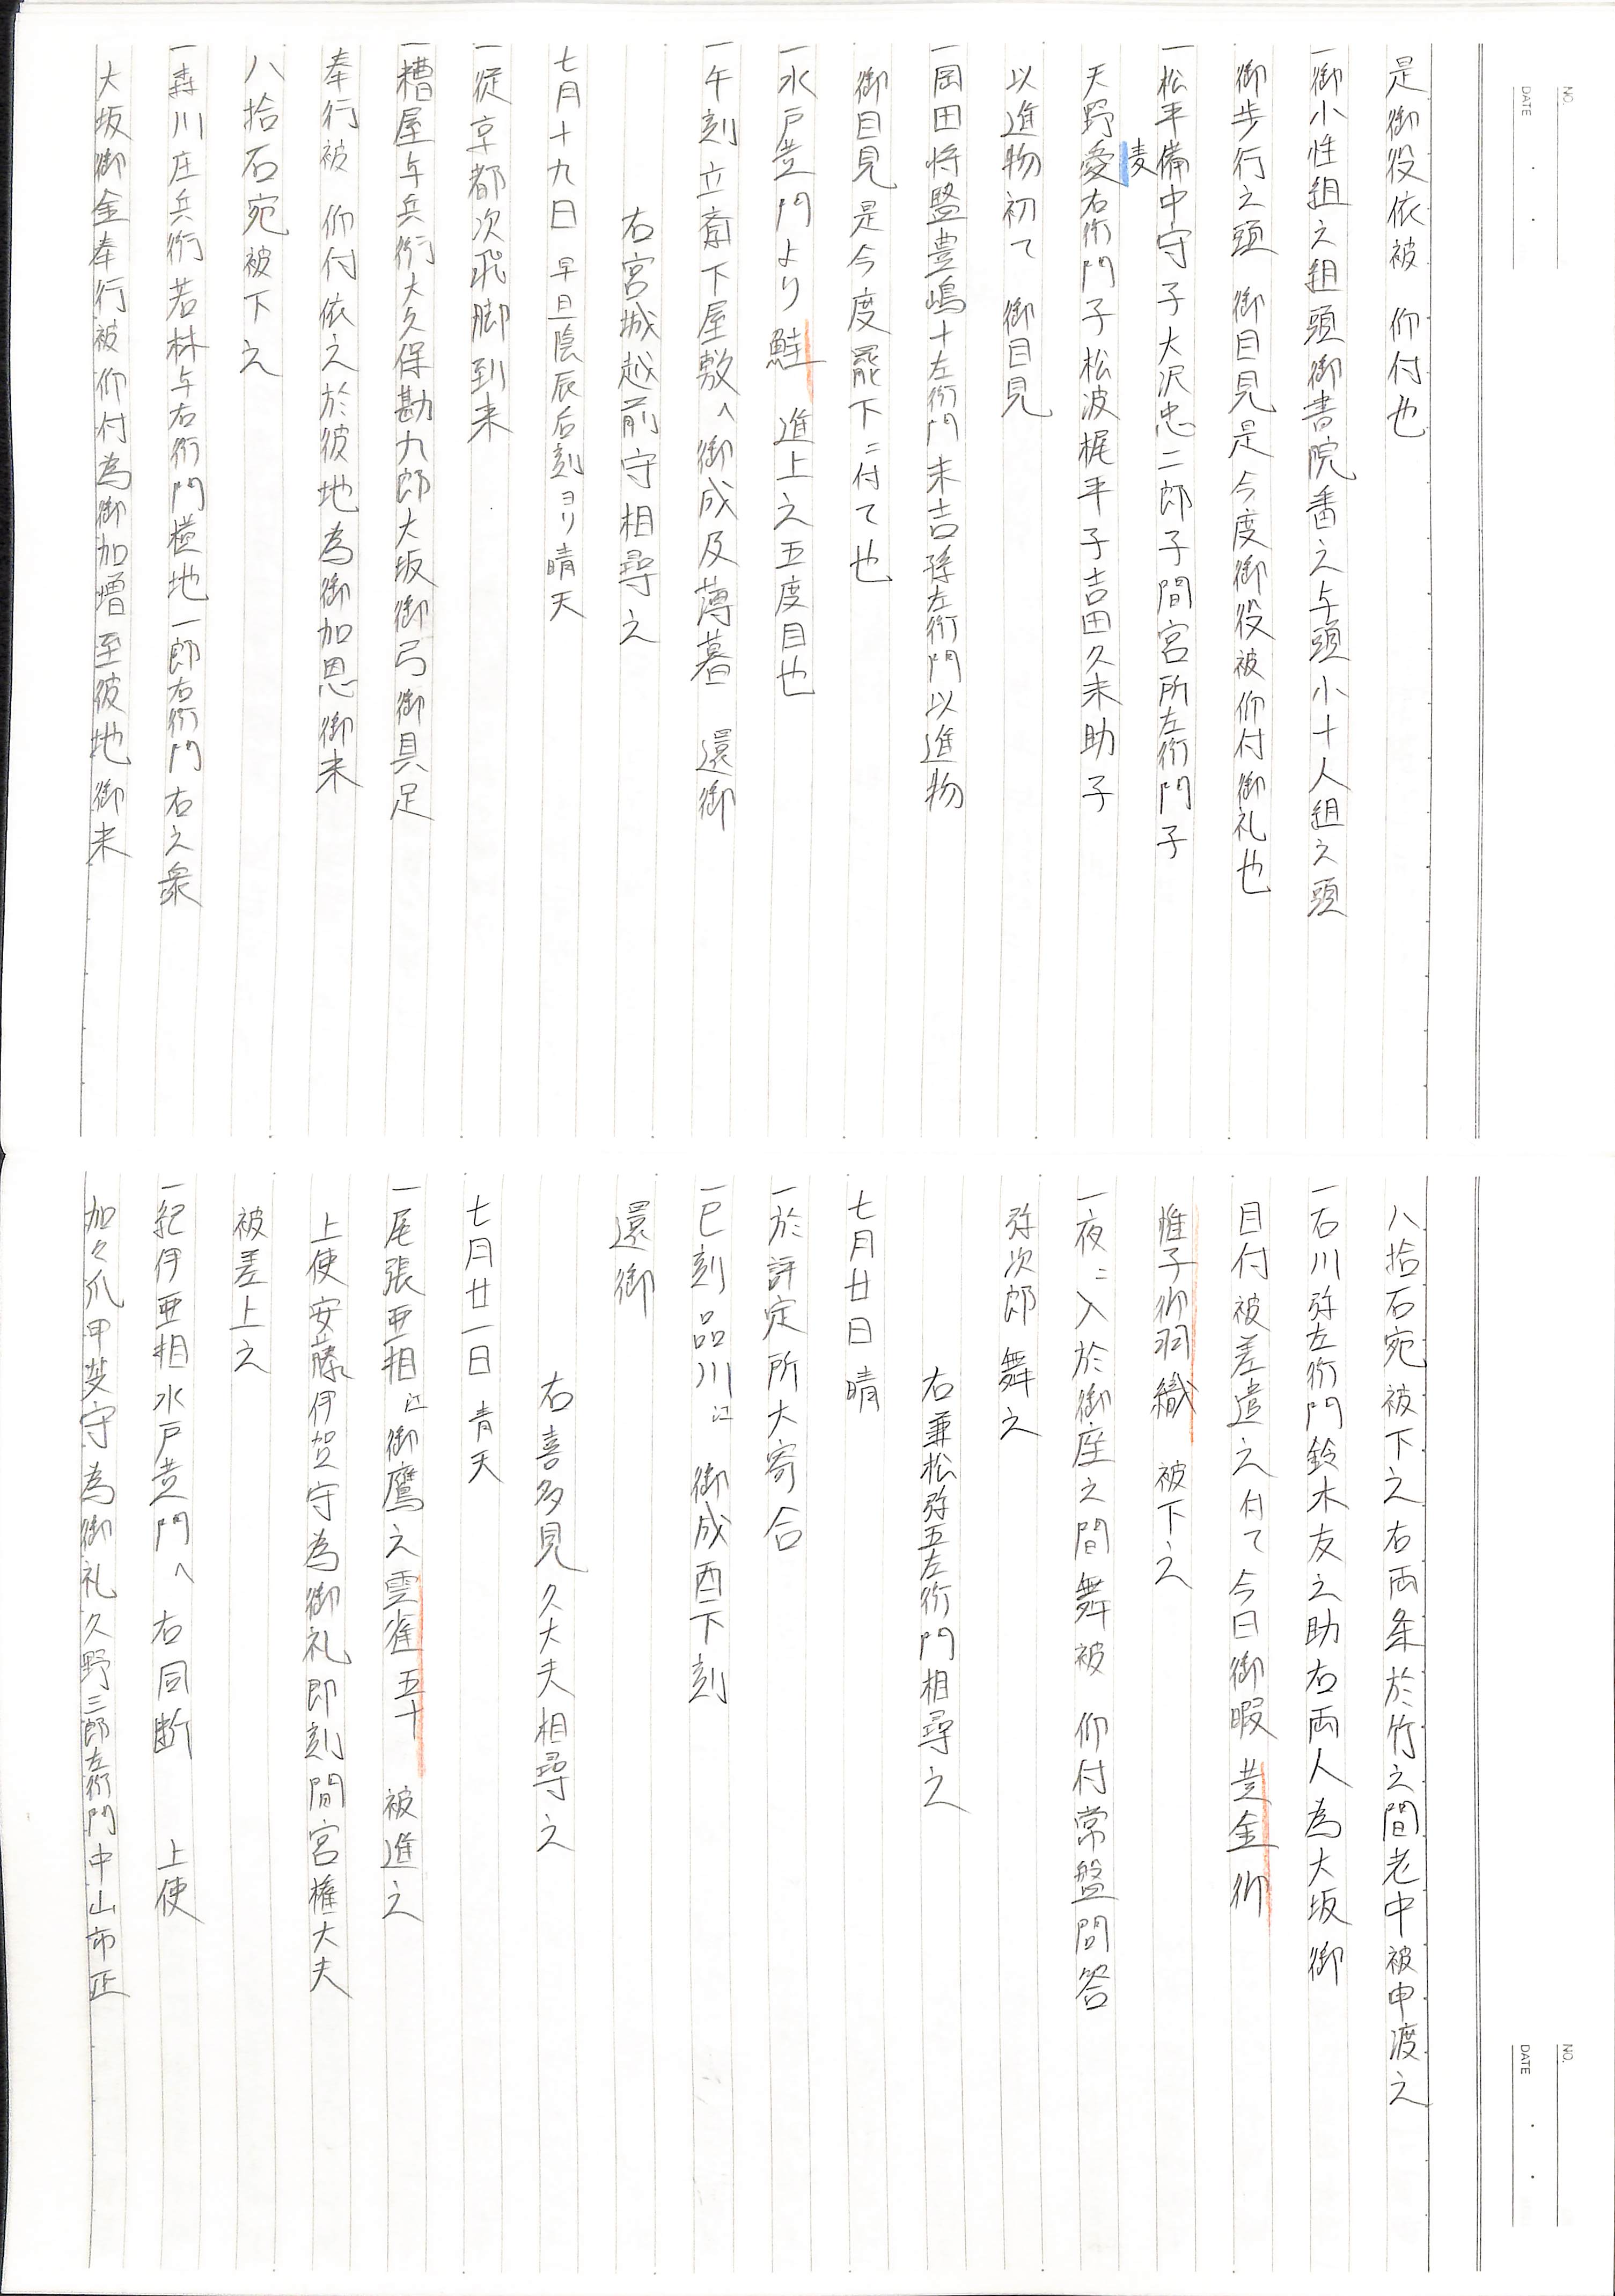 NO.
DATE
是御役依被　仰付也
一御小性組之組頭御書院番之与頭小十人組之頭
御歩行之頭　御目見是今度御役被仰付御礼也
一松平備中守子大沢忠二郎子間宮所左衛門子
麦
天野愛右衛門子松波梶平子吉田久末助子
以進物初て　御目見
一岡田将監豊嶋十左衛門末吉孫左衛門以進物
御目見是今度罷下ニ付て也
一水戸黄門より鮭　進上之五度目也
一午刻立斎下屋敷へ御成及薄暮　還御
右宮城越前守相尋之
七月十九日　早旦陰辰后刻ヨリ晴天
一従京都次飛脚到来
一糟屋与兵衛大久保勘九郎大坂御弓御具足
奉行被　仰付依之於彼地為御加恩御米
八拾石宛被下之
一森川庄兵衛若林与右衛門蔭地一郎右衛門右之衆
大坂御金奉行被仰付為御加増至彼地御米
NO.
DATE
八拾石宛被下之右両条於竹之間老中被申渡之
一石川弥左衛門鈴木友之助右両人為大坂御
目付被差遣之付て今日御暇　黄金御
惟子御羽織　被下之
一夜ニ入於御座之間舞被　仰付常盤問答
弥次郎舞之
右兼松弥五左衛門相尋之
七月廿日　晴
一於評定所大寄合
一巳刻品川江　御成酉下刻
還御
右喜多見久大夫相尋之
七月廿一日　青天
一尾張亜相江御鷹之雲雀五十　被進之
上使安藤伊賀守為御礼即刻間宮権大夫
被差上之
一紀伊亜相水戸黄門へ　右同断　　上使
加々爪甲斐守為御礼久野三郎左衛門中山市正